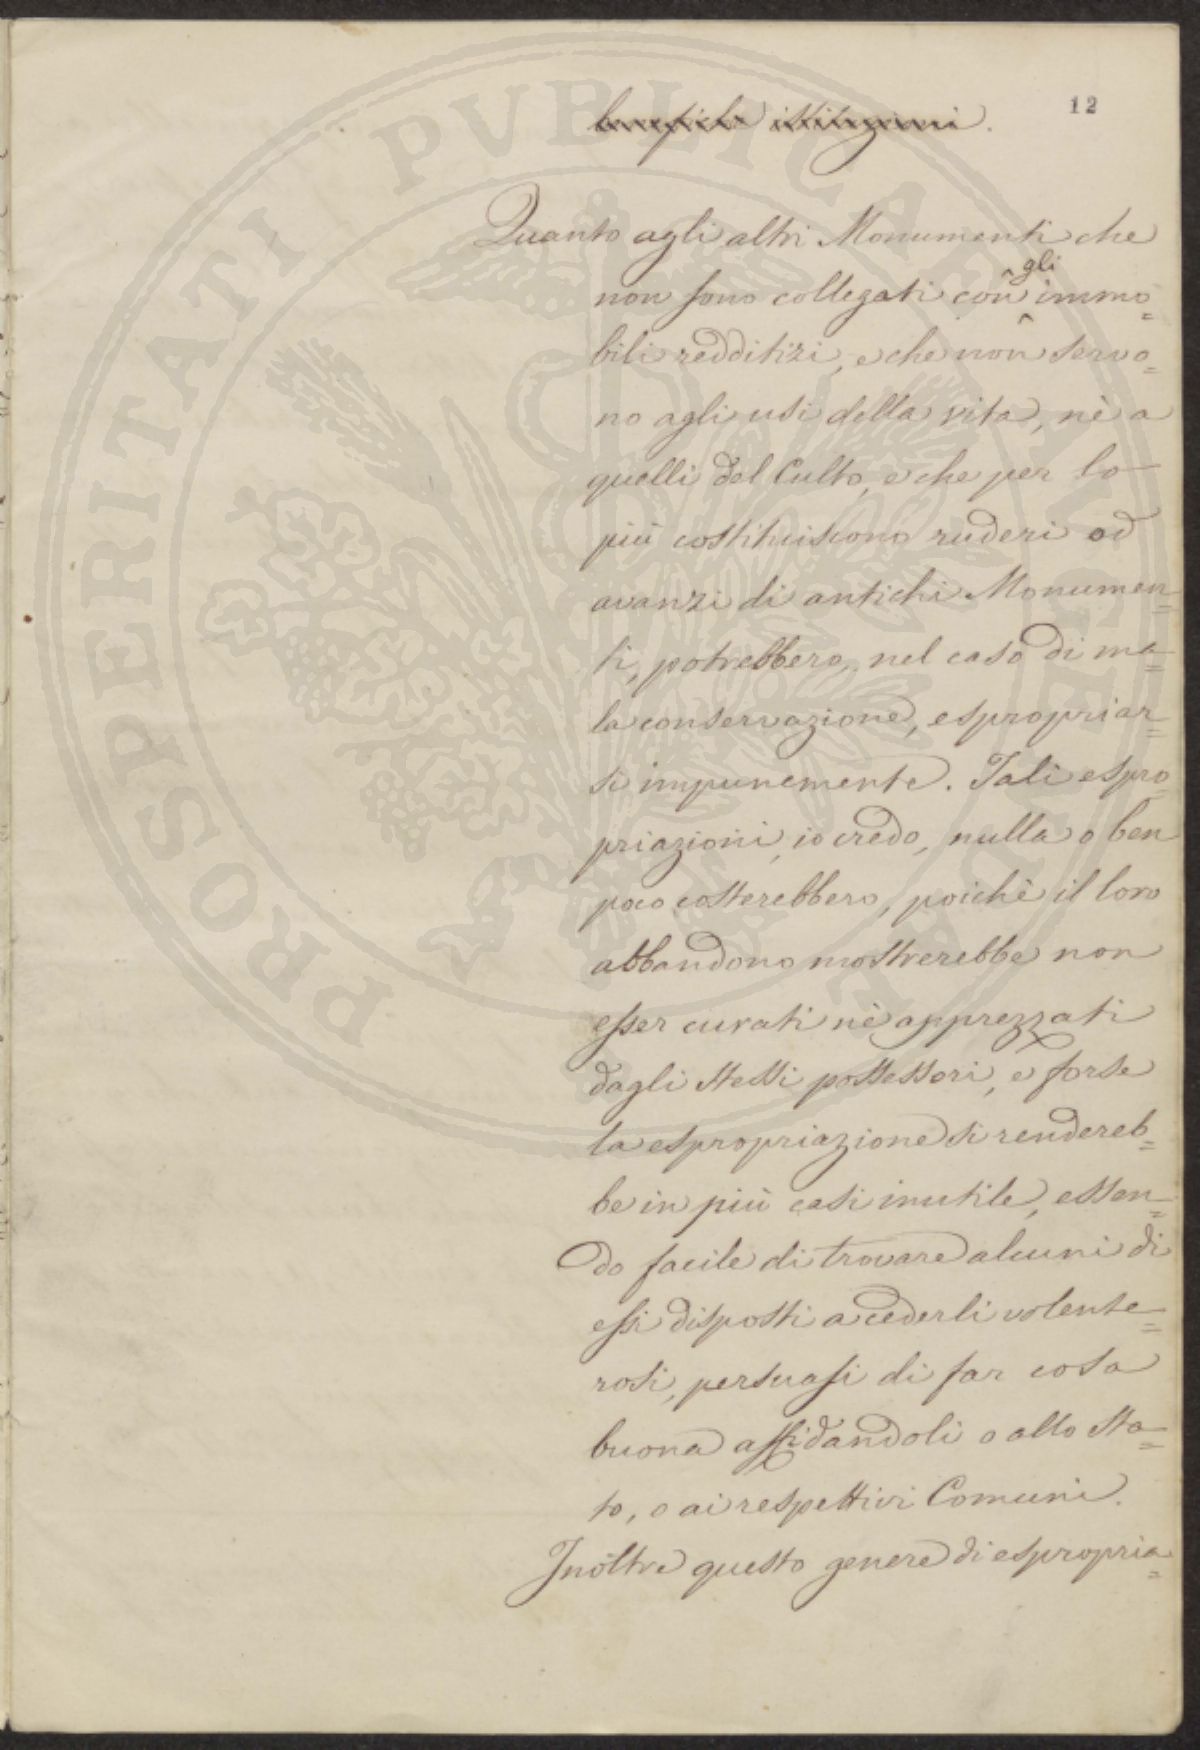 12
benefiche istituzioni.
Quanto agli altri Monumenti che
non sono collegati con gli immo=
bili redditizi, e che non servo=
no agli usi della vita, nè a
quelli del Culto, e che per lo
più costituiscono ruderi od
avanzi di antichi Monumen=
ti, potrebbero, nel caso di ma=
la conservazione, espropriar=
si impunemente. Tali espro=
priazioni, io credo, nulla o ben
poco costerebbero, poichè il loro
abbandono mostrerebbe non
esser curati nè apprezzati
dagli stessi possessori, e forse
la espropriazione si rendereb=
be in più casi inutile, essen=
do facile di trovare alcuni di
essi disposti a cederli volente=
rosi, persuasi di far cosa
buona affidandoli o allo Sta=
to, o ai respettivi Comuni.
Inoltre questo genere di espropria=
PROSPERITATI PVBLICAE AVGENDAE